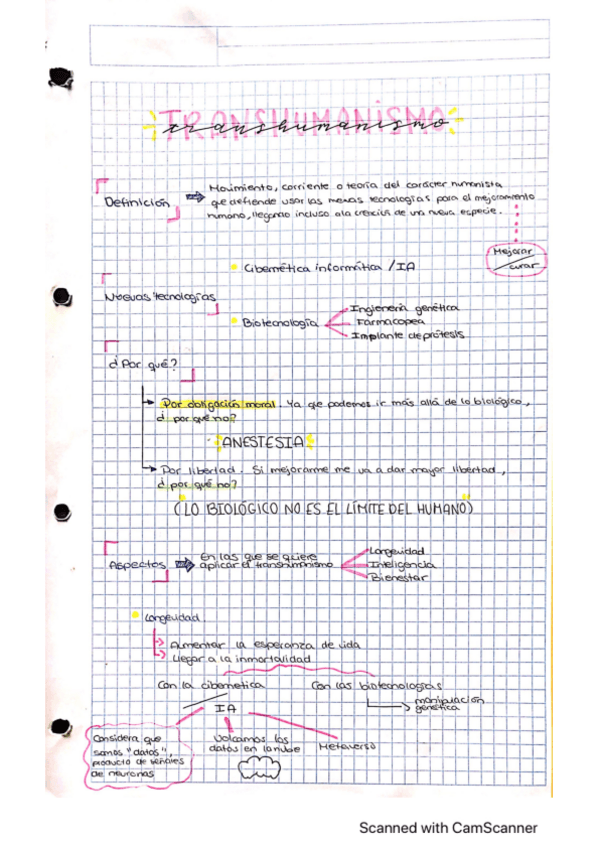 TRANSHUMANISMO
transhumanismo
Definición
Movimiento, corriente o teoría del carácter humanista
que defiende usar las nuevas tecnologías para el mejoramiento
humano, llegando incluso a la creación de una nueva especie.
Mejorar
curar
Cibernética informática / IA
Nuevas tecnologías
Biotecnología
Ingienería genética
Farmacopea
Implante de prótesis
¿Por qué?
Por obligación moral. Ya que podemos ir más allá de lo biológico,
¿ por qué no?
ANESTESIA
Por libertad. Si mejorarme me va a dar mayor libertad,
¿ por qué no?
(LO BIOLÓGICO NO ES EL LÍMITE DEL HUMANO)
Aspectos
En las que se quiere
aplicar el transhumanismo
Longevidad
Inteligencia
Bienestar
Longevidad
Aumentar la esperanza de vida
Llegar a la inmortalidad
Con la cibernetica
IA
Con las biotecnologías
manipulación
genética
Considera que
somos "datos",
producto de señales
de neuronas
Volcamos los
datos en la nube
Metaverso
Scanned with CamScanner